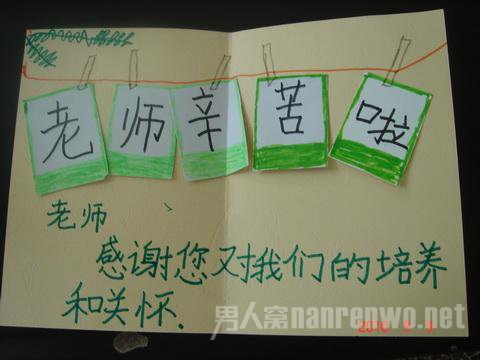 老师辛苦啦
老师
感谢您对我们的培养
和关怀.
男人窝nanrenwo.net